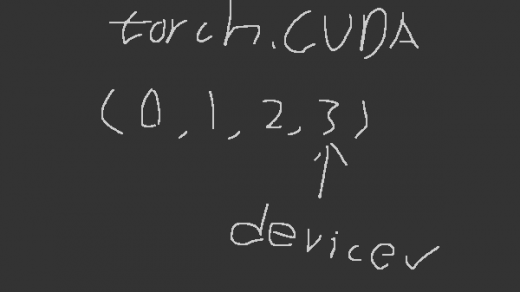 torch.CUDA
(0,1,2,3)
devicer